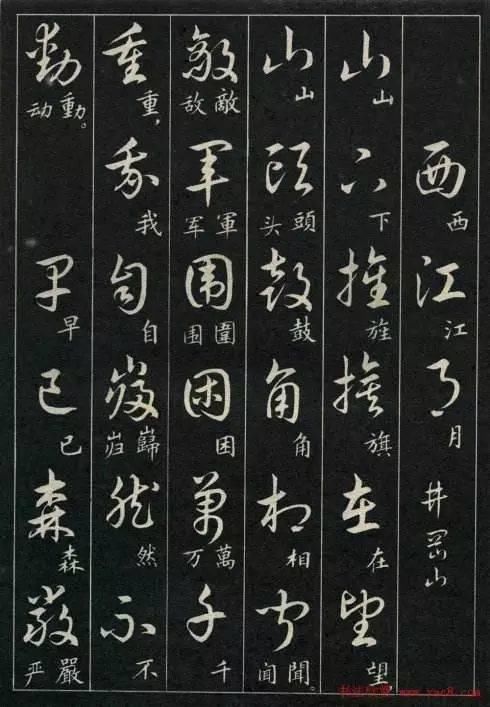 西江月 井岡山
西江月
山下旌旗在望
山下旌旗在望,
山頭鼓角相聞
山頭头鼓角相聞闻。
敵軍围困萬千
敵敌軍军圍围困萬万千
重我自巋然不
重,我自巋岿然不
動早已森嚴
動动。早已森嚴严
书法欣赏 www.yac8.com